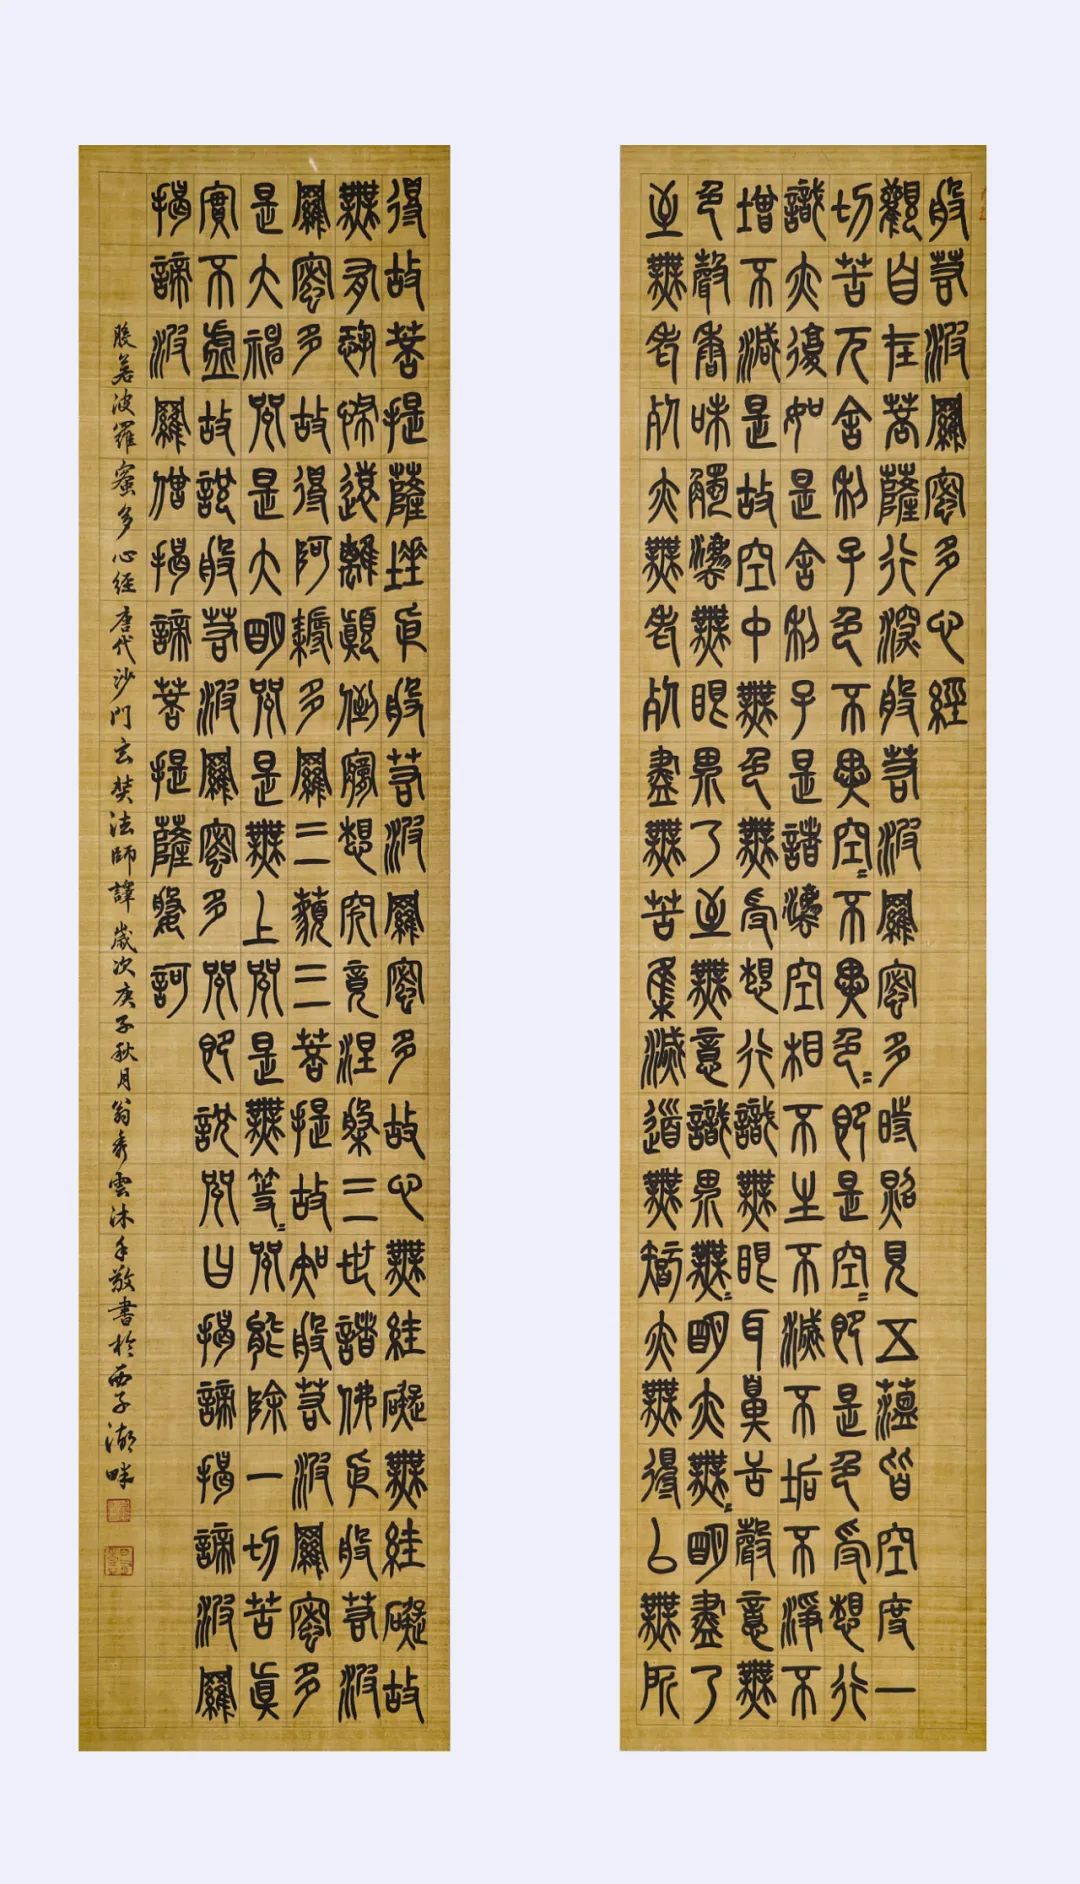 般若波羅蜜多心經
觀自在菩薩行深般若波羅蜜多時照見五蘊皆空度一
切苦厄舍利子色不異空〻不異色〻即是空〻即是色受想行
識亦復如是舍利子是諸法空相不生不滅不垢不淨不
增不減是故空中無色無受想行識無眼耳鼻舌聲意無
色聲香味觸法無眼界乃至無意識界無〻明亦無〻明盡乃
至無老死亦無老死盡無苦集滅道無智亦無得以無所
得故菩提薩埵依般若波羅蜜多故心無絓礙無絓礙故
無有恐怖遠離顛倒夢想究竟涅槃三世諸佛依般若波
羅蜜多故得阿耨多羅三藐三菩提故知般若波羅蜜多
是大神咒是大明咒是無上咒是無等〻咒能除一切苦真
實不虛故說般若波羅蜜多咒即說咒曰揭諦揭諦波羅
揭諦波羅僧揭諦菩提薩婆訶
般若波羅蜜多心經 唐代沙門玄奘法師譯 歲次庚子秋月翁秀雲沐手敬書於西子湖畔